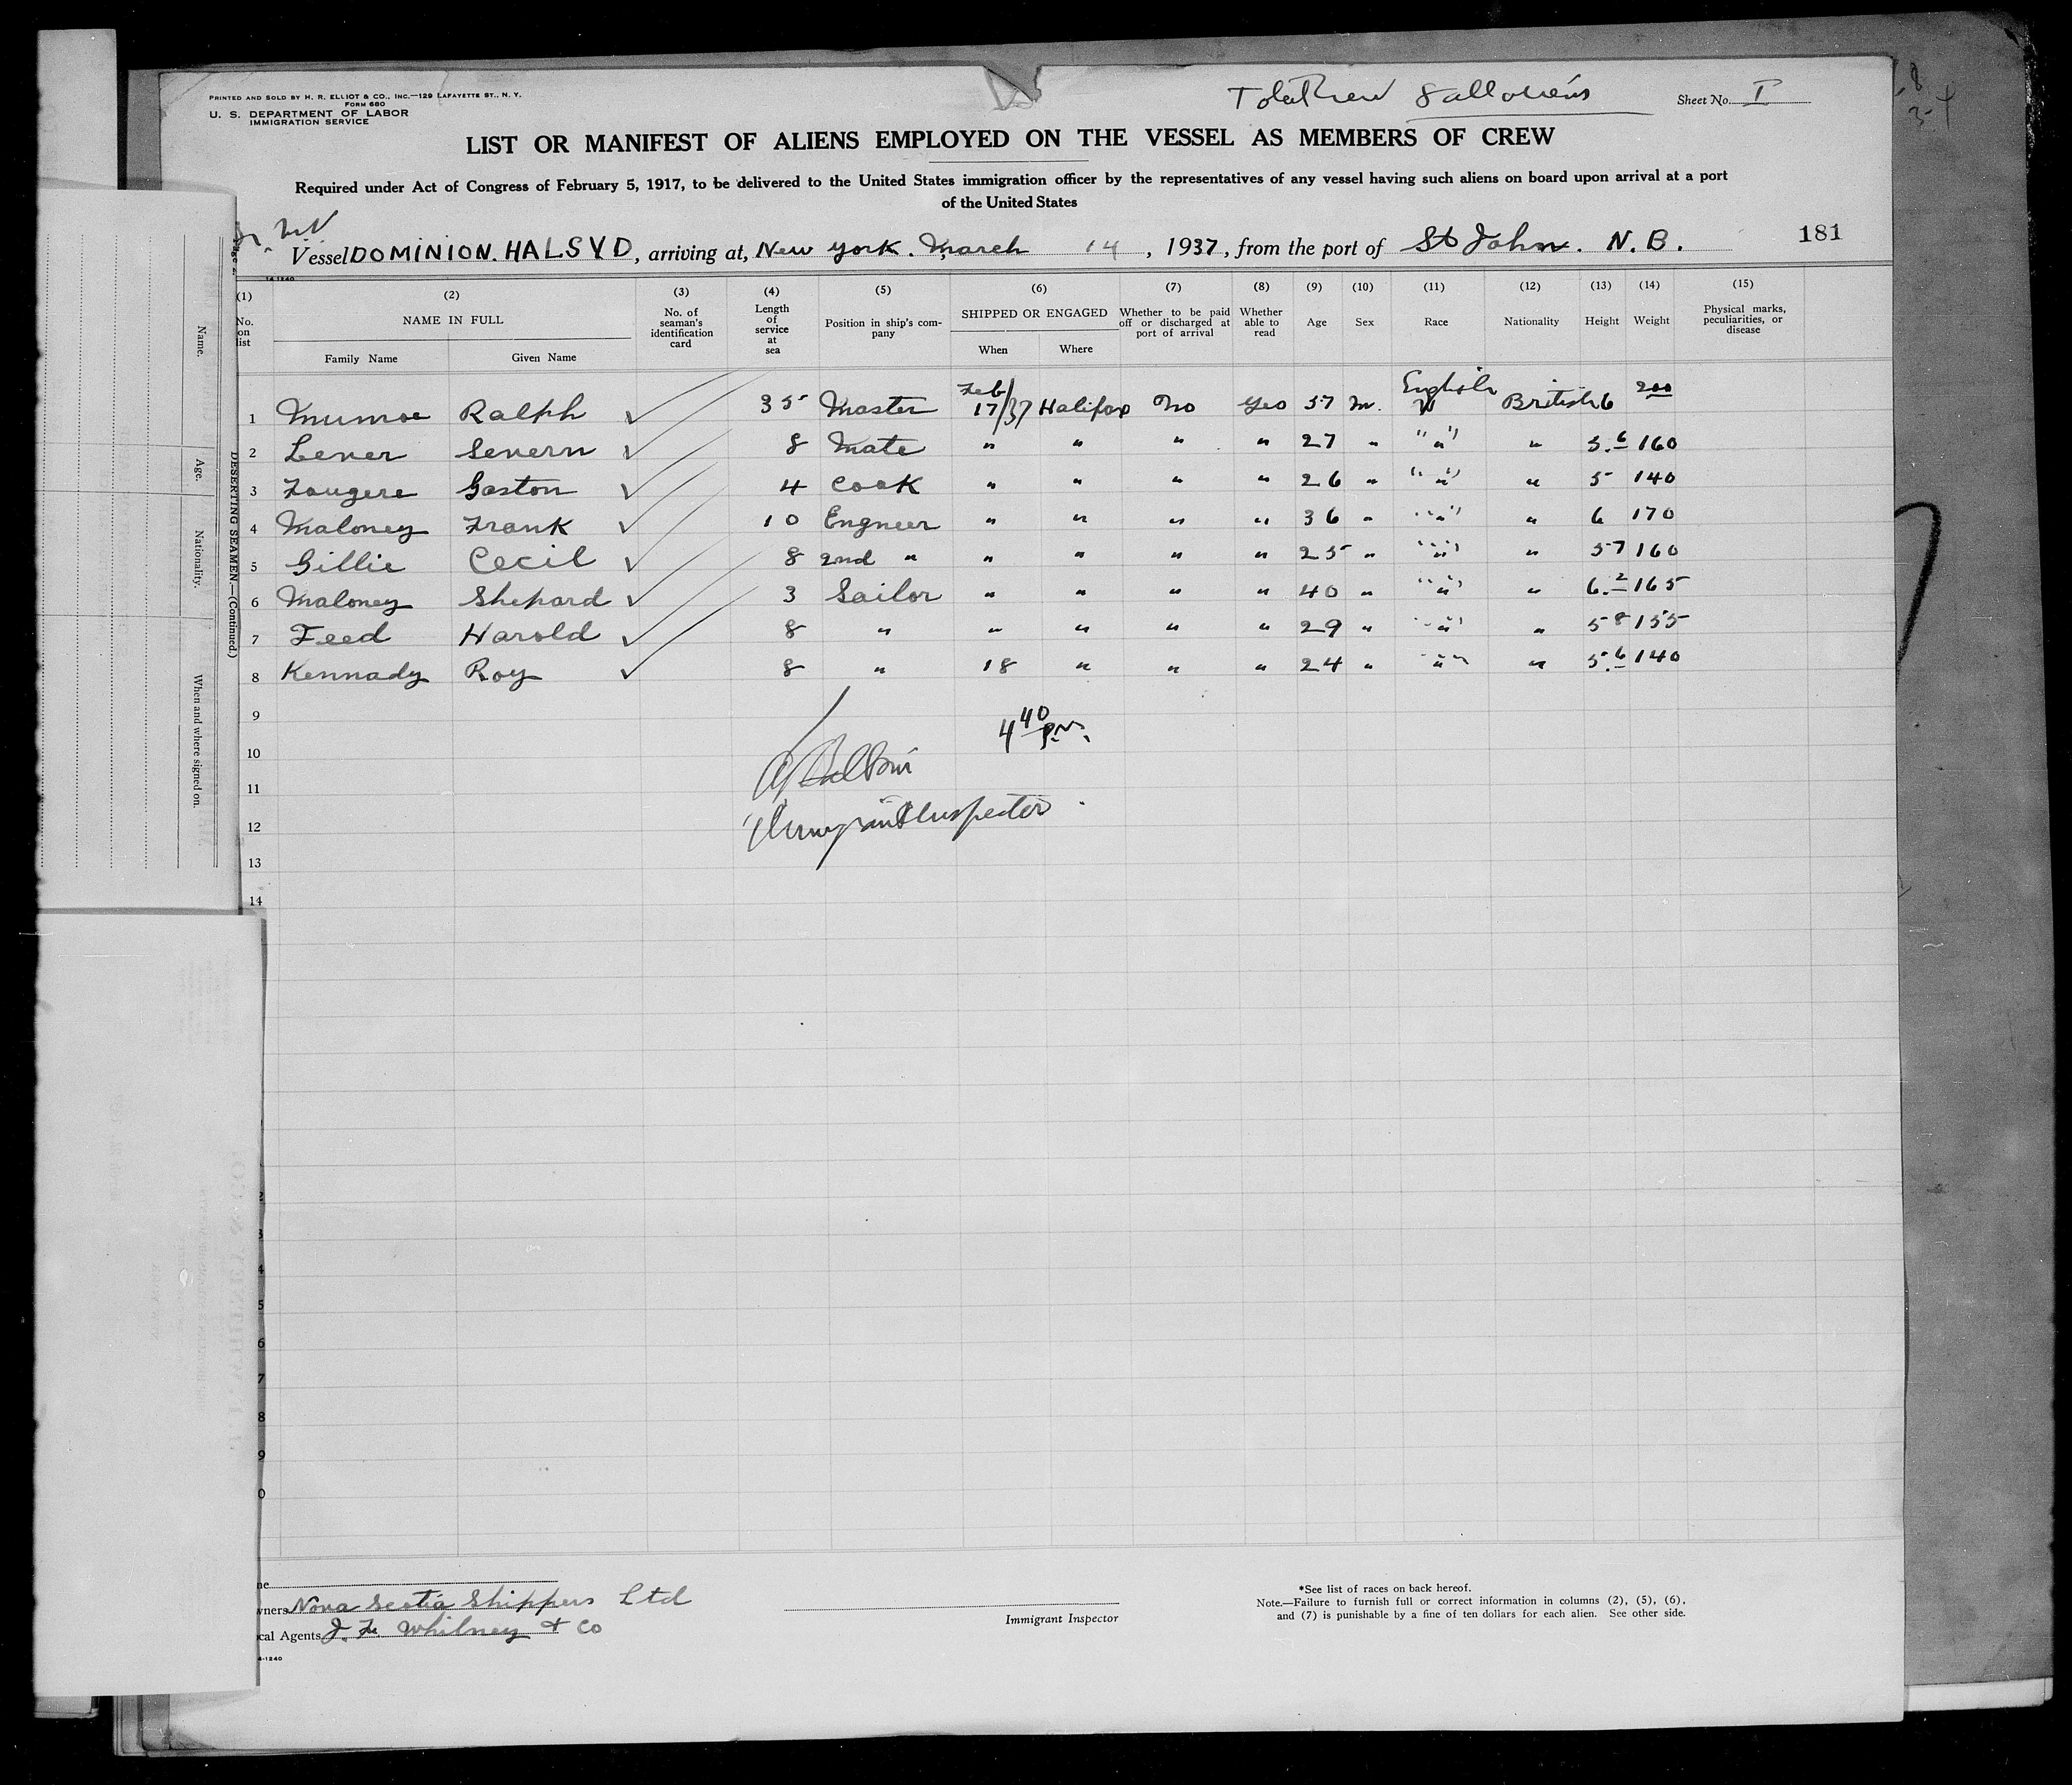 PRINTED AND SOLD BY H. R. ELLIOT & CO., INC.—129 LAFAYETTE ST., N. Y.
FORM 680
U. S. DEPARTMENT OF LABOR
IMMIGRATION SERVICE
Sheet No. I
LIST OR MANIFEST OF ALIENS EMPLOYED ON THE VESSEL AS MEMBERS OF CREW
Required under Act of Congress of February 5, 1917, to be delivered to the United States immigration officer by the representatives of any vessel having such aliens on board upon arrival at a port
of the United States
Vessel DOMINION. HALSYD, arriving at, New York. March 14, 1937, from the port of St John. N. B. 181
14-1240
(1) (2) (3) (4) (5) (6) (7) (8) (9) (10) (11) (12) (13) (14) (15)
No. on list NAME IN FULL Family Name Given Name No. of seaman's identification card Length of service at sea Position in ship's company SHIPPED OR ENGAGED When Where Whether to be paid off or discharged at port of arrival Whether able to read Age Sex Race Nationality Height Weight Physical marks, peculiarities, or disease
1 Munroe Ralph ✓ 35 Master Feb 17/37 Halifax No Yes 57 M. English British 6 200
2 Lever Severn ✓ 8 Mate " " " " 27 " " " 5.6 160
3 Fougere Gaston ✓ 4 Cook " " " " 26 " " " 5 140
4 Maloney Frank ✓ 10 Engneer " " " " 36 " " " 6 170
5 Gillie Cecil ✓ 8 2nd " " " " " 25 " " " 5 7 160
6 Maloney Shepard ✓ 3 Sailor " " " " 40 " " " 6.2 165
7 Feed Harold ✓ 8 " " " " " 29 " " " 5 8 155
8 Kennady Roy ✓ 8 " 18 " " " 24 " " " 5.6 140
9
10
11
12
13
14
4 40 P.M.
Immigrant Inspector
Name.
Age.
Nationality.
When and where signed on.
DESERTING SEAMEN.—(Continued.)
Nova Scotia Shippers Ltd
cal Agents J. F. Whitney & Co
4-1240
Immigrant Inspector
*See list of races on back hereof.
Note.—Failure to furnish full or correct information in columns (2), (5), (6),
and (7) is punishable by a fine of ten dollars for each alien. See other side.